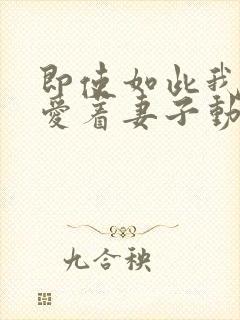 即使如此我
爱着妻子動
九合秧